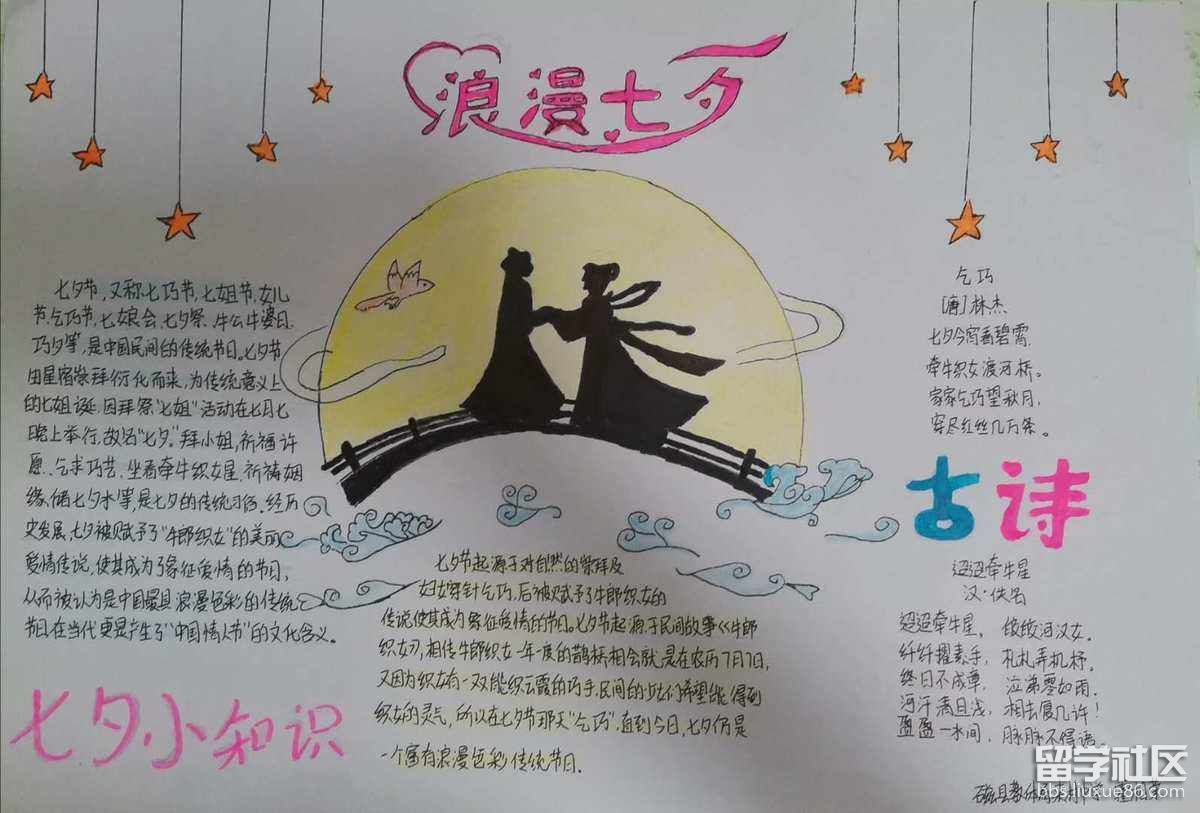 浪漫七夕
七夕节,又称七巧节,七姐节,女儿
节,乞巧节,七娘会,七夕祭,牛公牛婆日,
巧夕等,是中国民间的传统节日。七夕节
由星宿崇拜衍化而来,为传统意义上
的七姐诞,因拜祭“七姐”活动在七月七
晚上举行,故名“七夕”。拜小姐,祈福许
愿、乞求巧艺、坐看牵牛织女星、祈祷姻
缘、储七夕水等,是七夕的传统习俗。经历
史发展,七夕被赋予了“牛郎织女”的美丽
爱情传说,使其成为了象征爱情的节日,
从而被认为是中国最具浪漫色彩的传统
节日,在当代更是产生了“中国情人节”的文化含义。
七夕小知识
七夕节起源于对自然的崇拜及
妇女穿针乞巧,后被赋予了牛郎织女的
传说使其成为象征爱情的节日。七夕节起源于民间故事《牛郎
织女》,相传牛郎织女一年一度的鹊桥相会就是在农历7月7日,
又因为织女有一双能织云霞的巧手,民间的少女们希望能得到
织女的灵气,所以在七夕节那天“乞巧”。直到今日,七夕仍是
一个富有浪漫色彩传统节日.
乞巧
[唐]林杰
七夕今宵看碧霄,
牵牛织女渡河桥。
家家乞巧望秋月,
穿尽红丝几万条。
古诗
迢迢牵牛星
汉·佚名
迢迢牵牛星, 皎皎河汉女。
纤纤擢素手, 札札弄机杼。
终日不成章, 泣涕零如雨.
河汉清且浅, 相去复几许!
盈盈一水间, 脉脉不得语。
磁县
留学社区
bbs.liuxue86.com